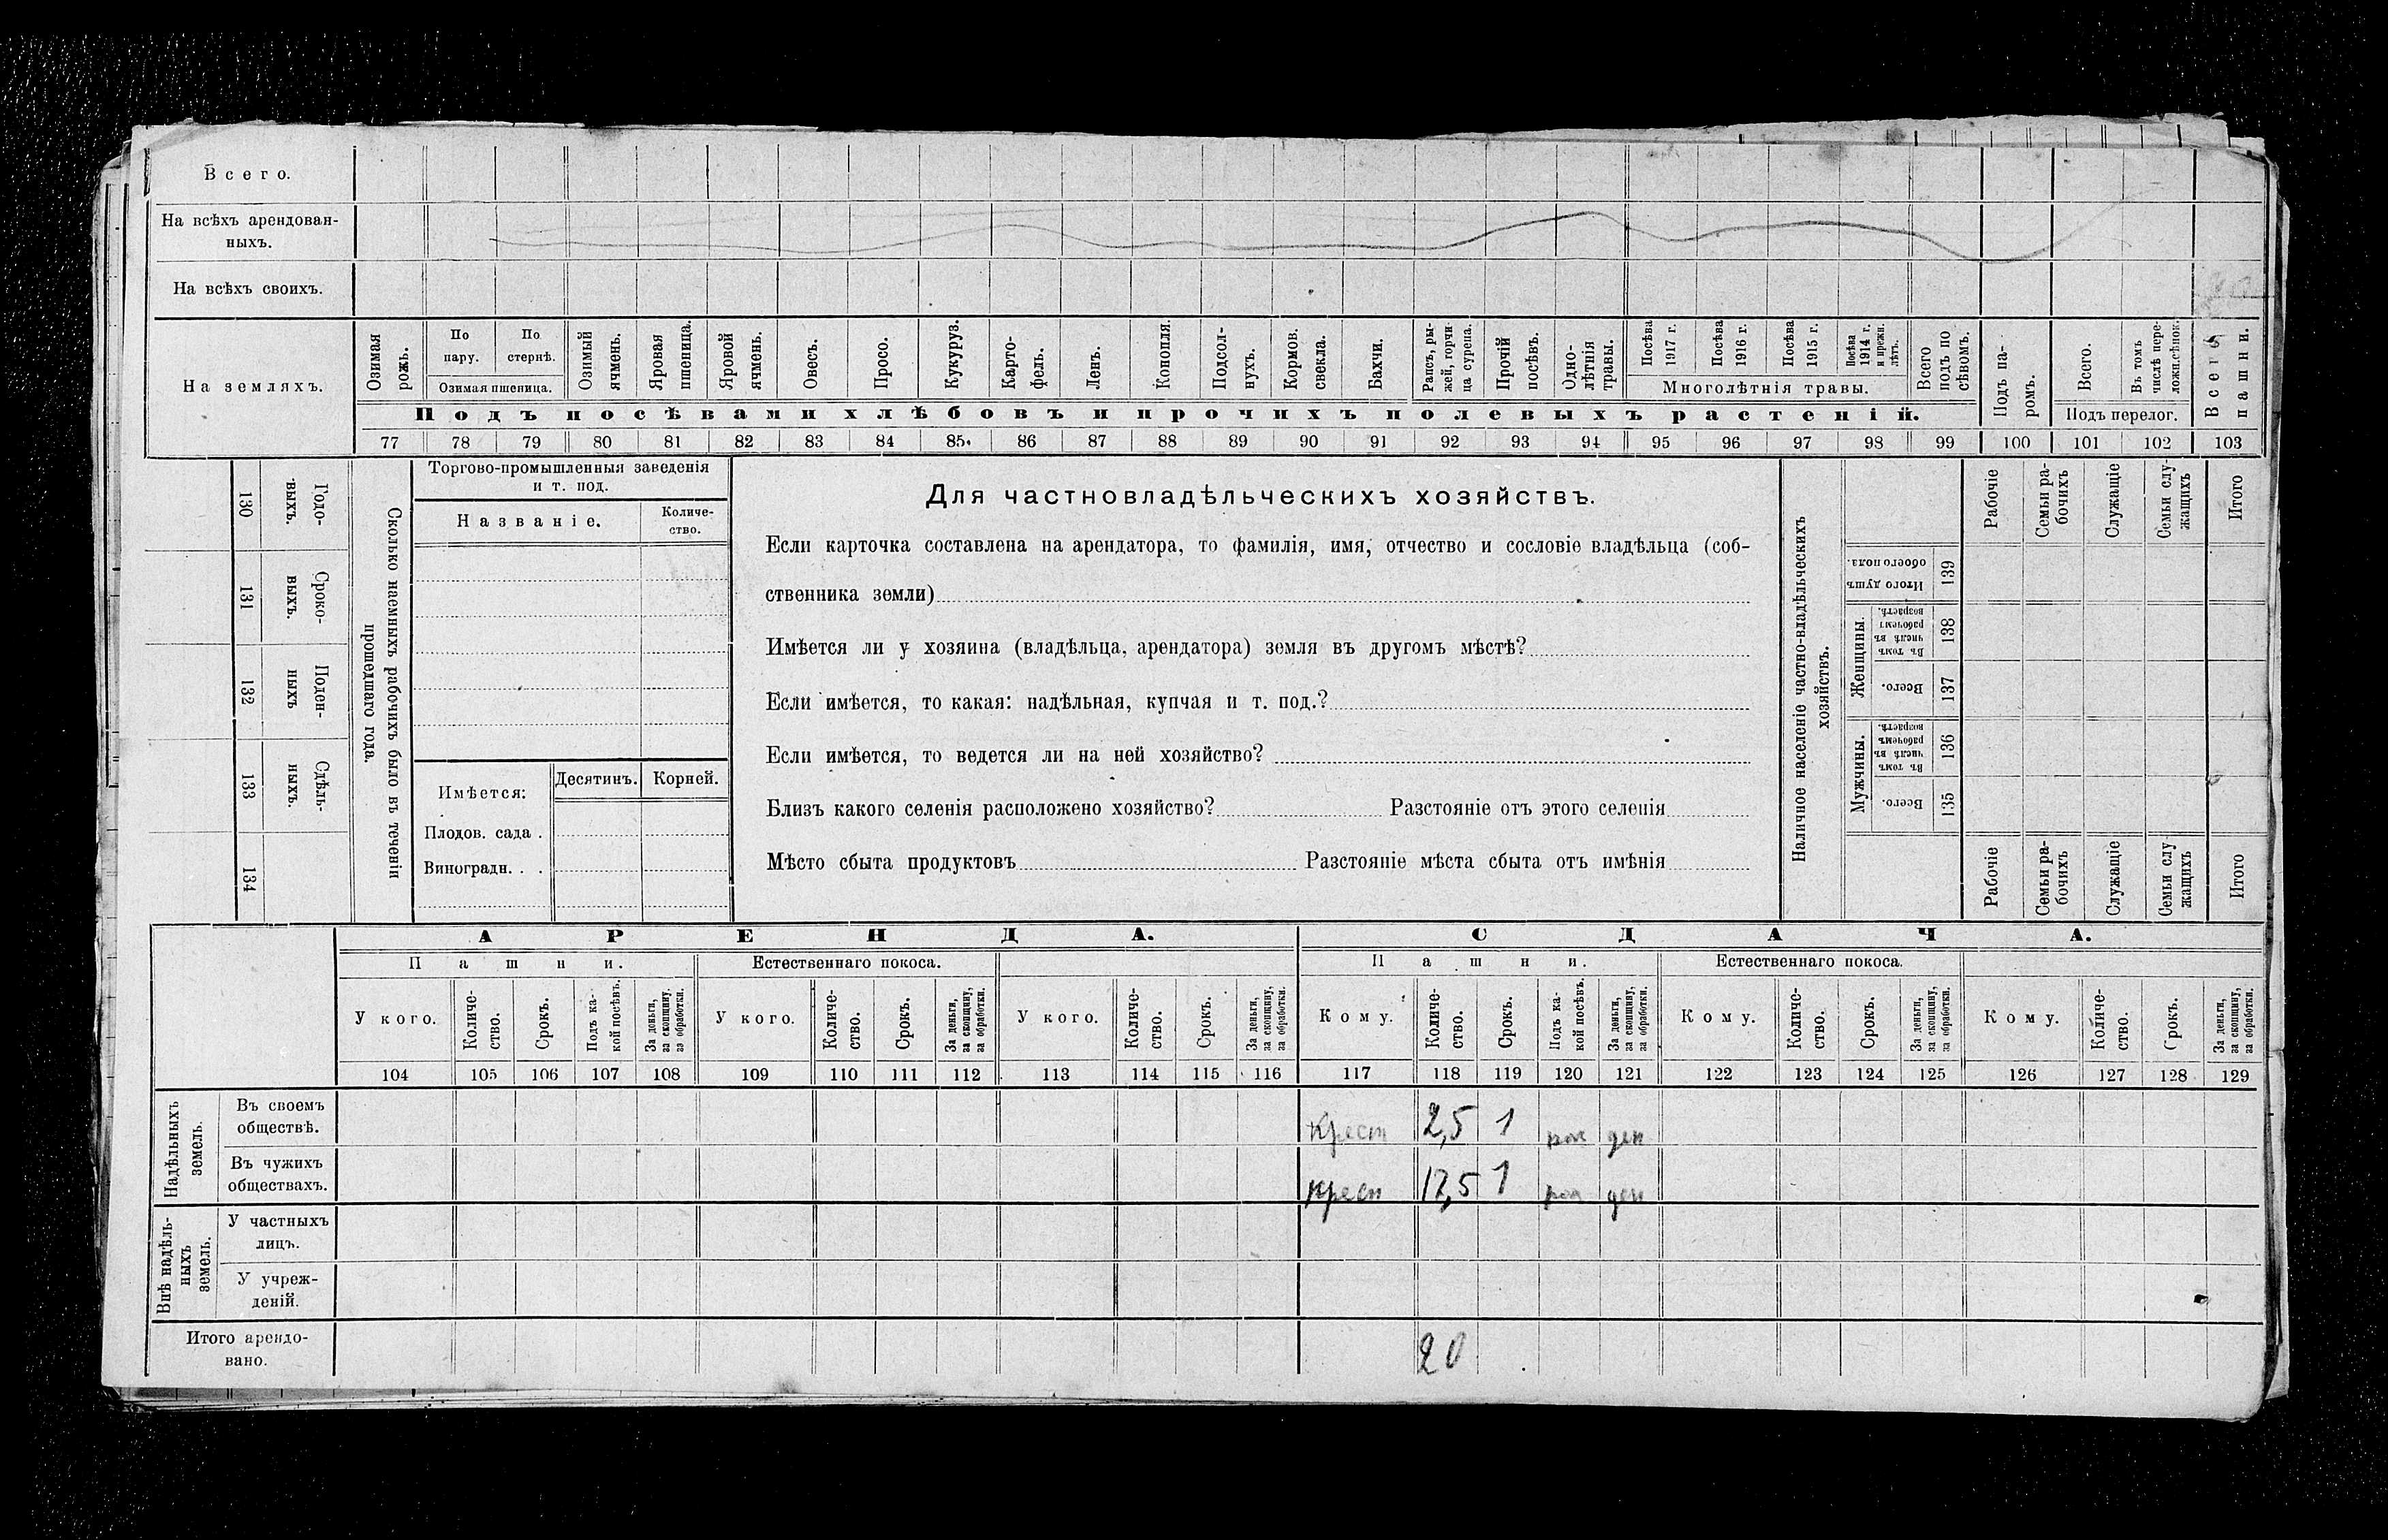 Всего.
На всѣхъ арендован-
ныхъ.
На всѣхъ своихъ.
На земляхъ.
Озимая рожь.
По пару.
По стернѣ.
Озимая пшеница.
Озимый ячмень.
Яровая пшеница.
Яровой ячмень.
Овесъ.
Просо.
Кукуруз.
Карто-
фель.
Ленъ.
Конопля.
Подсол-
нухъ.
Кормов. свекла.
Бахчи.
Рапсъ, ры-
жей, горчи-
ца сурепа.
Прочій посѣвъ.
Одно-
лѣтнія травы.
Посѣва 1917 г.
Посѣва 1916 г.
Посѣва 1915 г.
Посѣва 1914 г. и прежн. лѣтъ.
Многолѣтнія травы.
Всего подъ по
сѣвомъ.
Подъ па-
ромъ.
Всего.
Въ томъ числѣ пере-
ложн.сѣнок.
Подъ перелог.
Всего пашни.
Подъ посѣвами хлѣбовъ и прочихъ полевыхъ растеній.
77 78 79 80 81 82 83 84 85 86 87 88 89 90 91 92 93 94 95 96 97 98 99 100 101 102 103
130 Годо-
выхъ.
131 Сроко-
выхъ.
132 Поден-
ныхъ
133 Сдѣль-
ныхъ.
134
Сколько наемныхъ рабочихъ было въ теченіи
прошедшаго года.
Торгово-промышленныя заведенія
и т. под.
Названіе.
Количе-
ство.
Имѣется:
Десятинъ.
Корней.
Плодов. сада .
Виноградн. . .
Для частновладѣльческихъ хозяйствъ.
Если карточка составлена на арендатора, то фамилія, имя, отчество и сословіе владѣльца (соб-
ственника земли)
Имѣется ли у хозяина (владѣльца, арендатора) земля въ другомъ мѣстѣ?
Если имѣется, то какая: надѣльная, купчая и т. под.?
Если имѣется, то ведется ли на ней хозяйство?
Близъ какого селенія расположено хозяйство? Разстояніе отъ этого селенія
Мѣсто сбыта продуктовъ Разстояніе мѣста сбыта отъ имѣнія
Наличное населеніе частно-владѣльческихъ
хозяйствъ.
Рабочіе
Семьи ра-
бочихъ
Служащіе
Семьи слу-
жащихъ
Итого
Итого душъ
обоего пола.
139
Женщины.
Въ томъ
числѣ въ
рабочемъ
возрастѣ.
138
Всего.
137
Мужчины.
Въ томъ
числѣ въ
рабочемъ
возрастѣ.
136
Всего.
135
Рабочіе
Семьи ра-
бочихъ
Служащіе
Семьи слу
жащихъ
Итого
АРЕНДА.
СДАЧА.
Пашни.
Естественнаго покоса.
Пашни.
Естественнаго покоса.
У кого.
Количе-
ство.
Срокъ.
Подъ ка-
кой посѣвъ.
За деньги,
за скопщину,
за обработки.
У кого.
Количе-
ство.
Срокъ.
За деньги,
за скопщину,
за обработки.
У кого.
Количе-
ство.
Срокъ.
За деньги,
за скопщину,
за обработки.
Кому.
Количе-
ство.
Срокъ.
Подъ ка-
кой посѣвъ.
За деньги,
за скопщину,
за обработки.
Кому.
Количе-
ство.
Срокъ.
За деньги,
за скопщину,
за обработки.
Кому.
Количе-
ство.
Срокъ.
За деньги,
за скопщину,
за обработки.
104 105 106 107 108 109 110 111 112 113 114 115 116 117 118 119 120 121 122 123 124 125 126 127 128 129
Надѣльныхъ
земель.
Въ своемъ
обществѣ.
Крест 2,5 1 ден
Въ чужихъ
обществахъ.
крест 17,5 1 ден
Внѣ надѣль-
ныхъ
земель.
У частныхъ
лицъ.
У учреж-
деній.
Итого арендо-
вано.
20